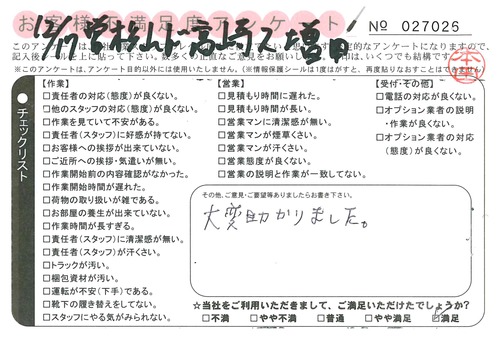 お客様ご満足度アンケート
No 027025
12/17 曽根山ド高崎ス増甲
※このアンケートは、アンケート目的以外には使用いたしません。(※情報保護シールは1度はがすと、再度貼りなおすことはできません)
チェックリスト
【作業】
□責任者の対応(態度)が良くない。
□他のスタッフの対応(態度)が良くない。
□作業を見ていて不安がある。
□責任者(スタッフ)に好感が持てない。
□お客様への挨拶が出来ていない。
□ご近所への挨拶・気遣いが無い。
□作業開始前の内容確認がなかった。
□作業開始時間が遅れた。
□荷物の取り扱いが雑である。
□お部屋の養生が出来ていない。
□作業時間が長すぎる。
□責任者(スタッフ)に清潔感が無い。
□責任者(スタッフ)が汗くさい。
□トラックが汚い。
□梱包資材が汚い。
□運転が不安(下手)である。
□靴下の履き替えをしてない。
□スタッフにやる気がみられない。
【営業】
□見積もり時間に遅れた。
□見積もり時間が長い。
□営業マンに清潔感が無い。
□営業マンが煙草くさい。
□営業マンが汗くさい。
□営業態度が良くない。
□営業の説明と作業が一致してない。
【受付・その他】
□電話の対応が良くない。
□オプション業者の説明・作業が良くない。
□オプション業者の対応(態度)が良くない。
その他、ご意見・ご要望等ありましたらお書き下さい。
大変助かりました。
☆当社をご利用いただきまして、ご満足いただけたでしょうか?
□不満 □やや不満 □普通 □やや満足 ☑満足